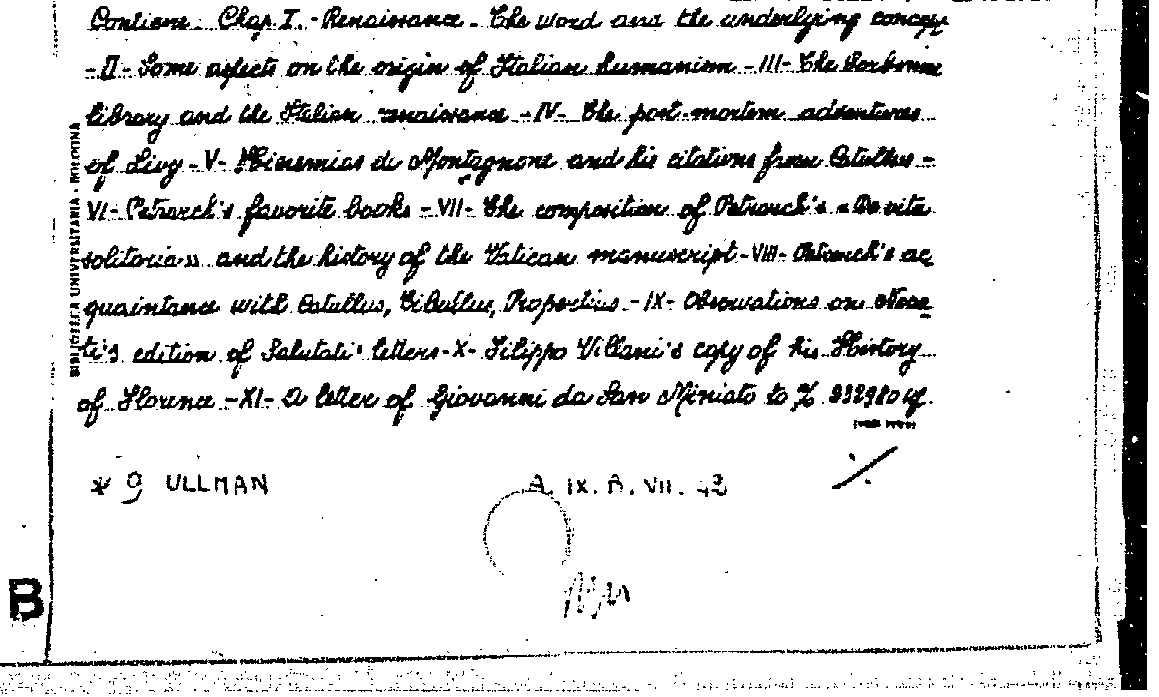 Contiene: Chap. I. - Renaissance - The word and the underlying concept
- II - Some aspects on the origin of Italian humanism - III - The Sorbonne
library and the Italian renaissance - IV - The post-mortem adventures
of Livy - V - Hieremias de Montagnone and his citations from Catullus -
VI - Petrarch's favorite books - VII - The composition of Petrarch's «De vita
solitaria» and the history of the Vatican manuscript - VIII - Petrarch's ac
quaintance with Catullus, Tibullus, Propertius - IX - Observations on Nova
ti's edition of Salutati's letters - X - Filippo Villani's copy of his History
of Florence - XI - A letter of Giovanni da San Miniato to %
BIBLIOTECA UNIVERSITARIA - BOLOGNA
* 9 ULLMAN A. IX. B. VII. 42
B